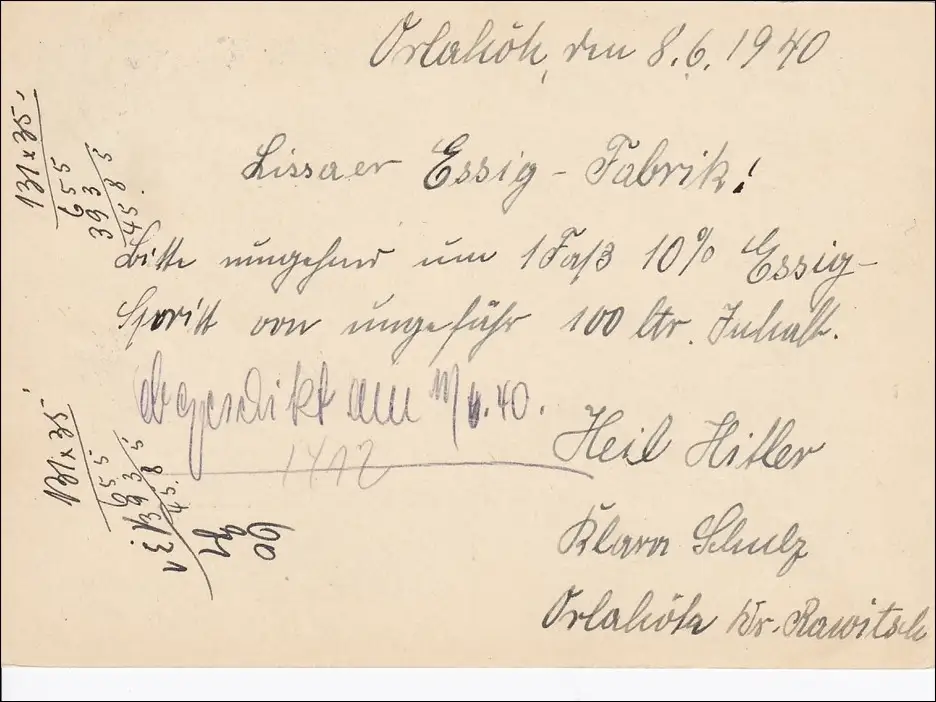 Orlahöh, den 8.6.1940
Lissaer Essig-Fabrik!
Bitte umgehend um 1 Faß 10% Essig-
Spritt von ungefähr 100 ltr. Inhalt.
am 11/6.40.
1412
Heil Hitler
Klara Schulz
Orlahöh Kr. Rawitsch
131x35
655
393
45.85
131x35
655
393
45.85